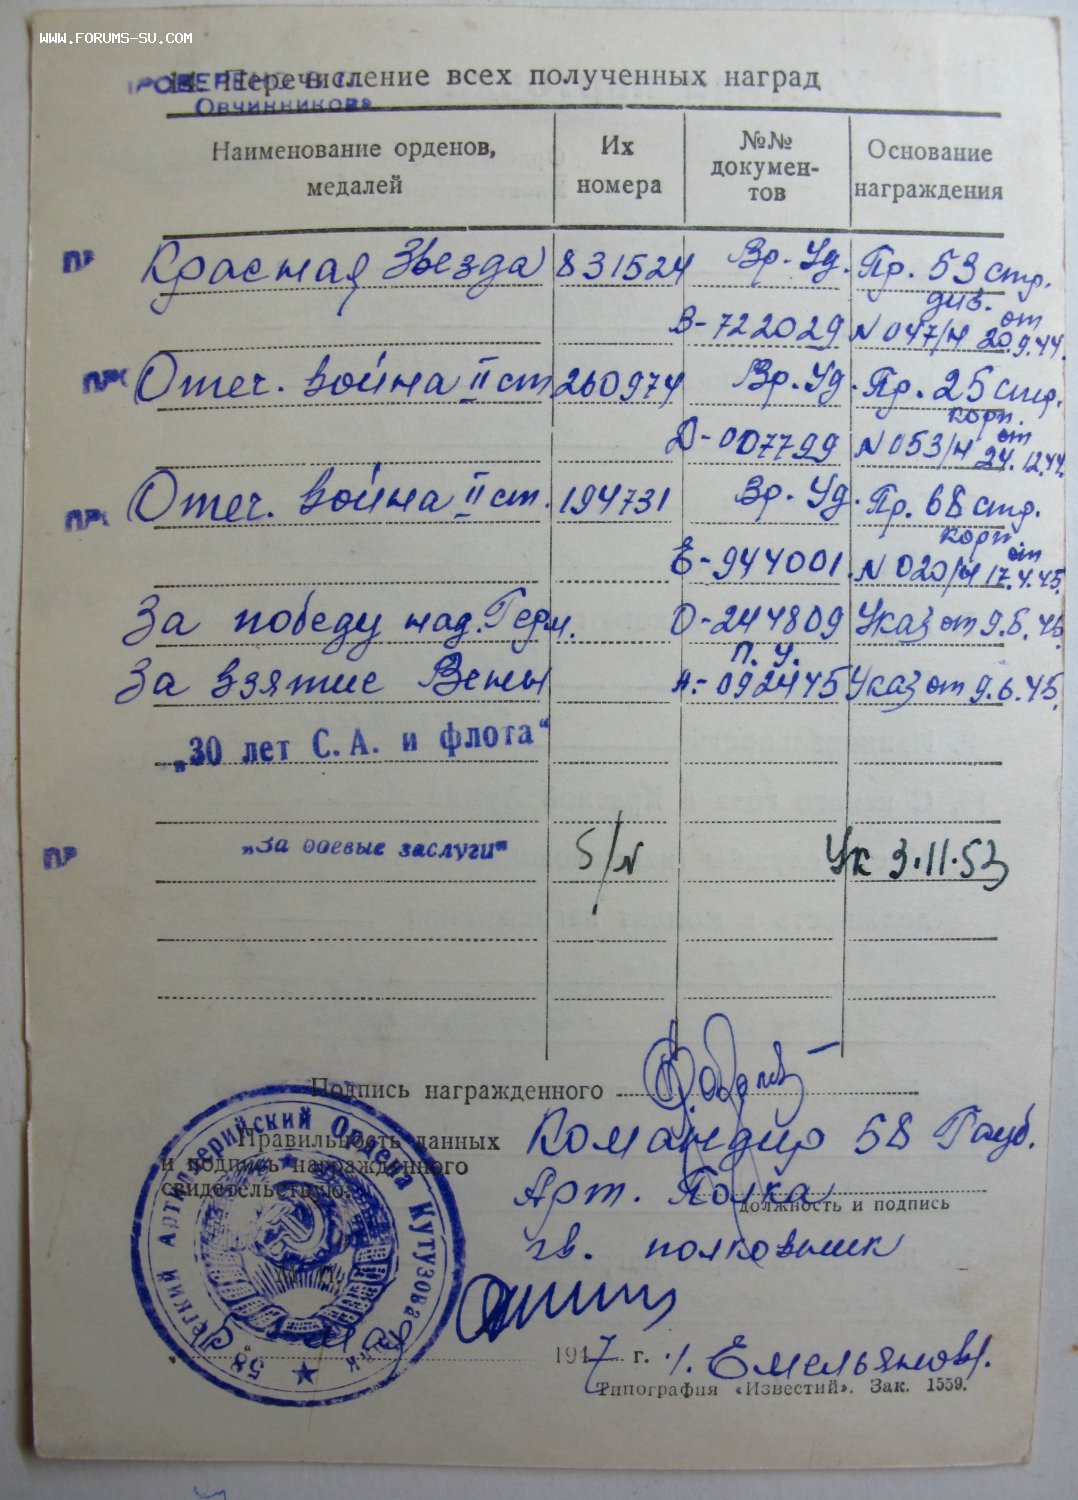 WWW.FORUMS-SU.COM
14. Перечисление всех полученных наград
Овчинникова
Наименование орденов, медалей
Их номера
№№ докумен-тов
Основание награждения
Красная Звезда 831524 Вр. Уд. Пр. 53 стр. див.
В-722029 N 047/н от 20.9.44.
Отеч. война II ст 260974 Вр. Уд. Пр. 25 стр. корп.
Д-007799 N 053/н от 24.12.44.
Отеч. война II ст. 194731 Вр. Уд. Пр. 68 стр. корп.
Е-944001. N 020/н от 17.4.45.
За победу над. Герм. О-244809 Указ от 9.5.45
П. У.
За взятие Вены А.-092445 Указ от 9.6.45.
„30 лет С.А. и флота“
„За боевые заслуги“ Б/N Ук 3.11.53
Подпись награжденного
Командир 58 Гауб.
Правильность данных
и подпись награжденного
свидетельствую:
Арт. Полка
должность и подпись
гв. полковник
Легкий Артиллерийский Ордена Кутузова полк „58“
М. П.
1947 г. /. Емельянов/.
Типография «Известий». Зак. 1559.